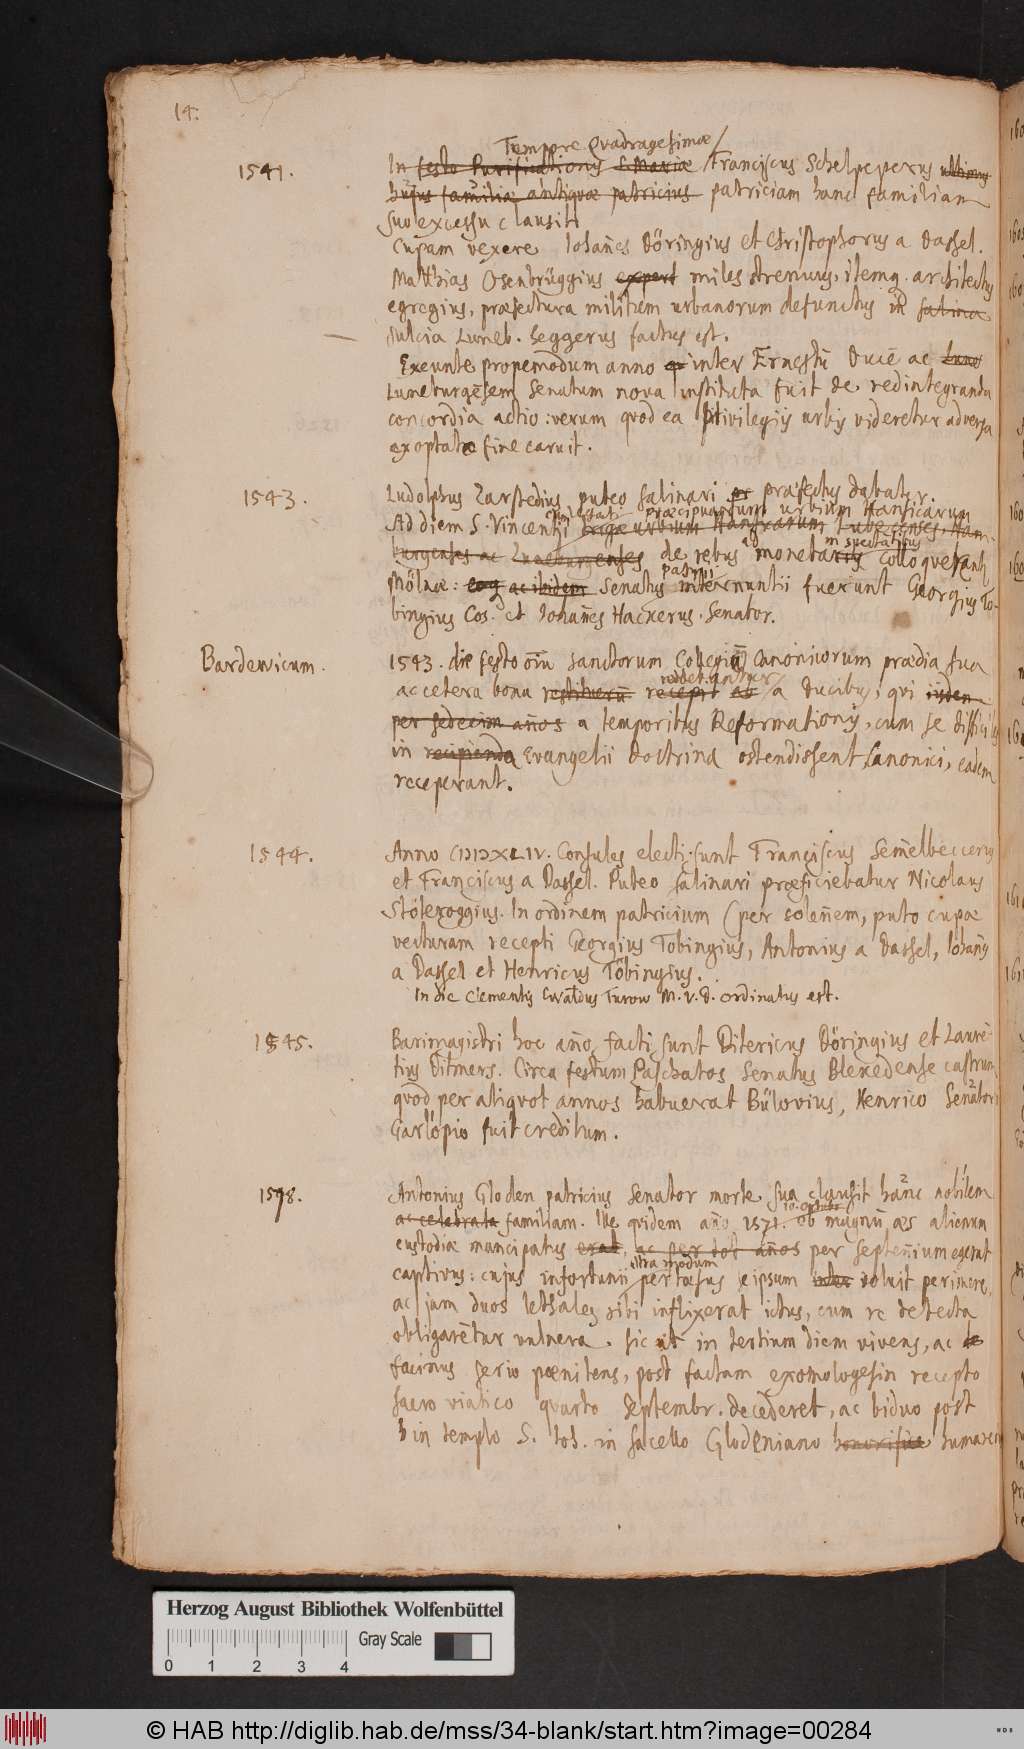 14.
Tempore Quadragesimae
1541. In festo Purificationis S. Mariae Franciscus Schelpeperus ultimus
hujus familiae antiquae patricius patriciam hanc familiam
suo excessu clausit.
Cupam vexere Iohañes Döringius et Christophorus a Dassel.
Matthias Osenbrüggius expert miles strenuus, itemq. architectus
egregius, praefectura militum urbanorum defunctus in salina
Sulcia Luneb. Seggerus factus est.
Exeunte propemodum anno inter Ernestū Ducē ac Lune
Luneburgēsem Senatum nova instituta fuit de redintegranda
concordia actio: verum quod ea privilegiis urbis videretur adversa
exoptato fine caruit.
1543. Ludolphus Zarstedius puteo salinari praefectus dabatur.
legati praecipuarum urbium Hansicarum
Ad diem S. Vincentii urbium Hansicarum Lubecenses, Ham-
in spectatius
burgenses ac Luneburgenses de rebus ad monetariis colloquerant
patrii
Mölnae: eoq ac ibidem Senatus internuntii fuerunt Georgius To-
bingius Cos. et Iohañes Hackerus. Senator.
Bardewicum. 1543. die festo oīm sanctorum Collegiū Canonicorum praedia sua
redderunter
ac cetera bona restituerū recepit ab a Ducibus, qui iisdem
per sedecim años a temporibus Reformationis, cum se difficiles
in recipienda Evangelii doctrina ostendissent Canonici, eadem
receperant.
1544. Anno CIↃIↃXLIV. Consules electi sunt Franciscus Semelbeccerus
et Franciscus a Dassel. Puteo salinari praeficiebatur Nicolaus
Stöteroggius. In ordinem patricium (per soleñem, puto cupae
vecturam recepti Georgius Tobingius, Antonius a Dassel, Iohañs
a Dassel et Henricus Töbingius.
In die Clementis Curaldus Turow M. V. D. ordinatus est.
1545. Barimagistri hoc año facti sunt Ditericus Döringius et Laurē-
tius Ditmers. Circa festum Paschatos Senatus Blekedense castrum
quod per aliquot annos habuerat Bülovius, Henrico Senatori
Garlopio fuit creditum.
1578. Antonius Gloden patricius Senator morte sua clausit hanc nobilem
10. Octobr
ac celebrata familiam. Is quidem año 1571. ob magnū aes alienum
custodiae mancipatus erat, ac per tot años per septeñium egerat
ultra modum
captivus: cujus infortunii pertaesus seipsum voluit perimere,
ac jam duos lethales sibi inflixerat ictus, cum re detecta
obligarētur vulnera. Sic ut in tertium diem vivens, ac
facinus serio poenitens, post factam exomologesin recepto
sacro viatico quarto Septembr. decederet, ac biduo post
in templo S. Ioh. in sacello Glodeniano honorifice humaren
Herzog August Bibliothek Wolfenbüttel
Gray Scale
0 1 2 3 4
© HAB http://diglib.hab.de/mss/34-blank/start.htm?image=00284